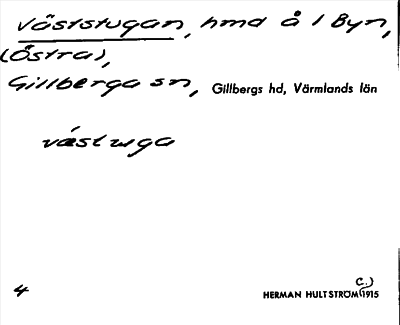 Väststugan, hmd å 1 Byn,
(Östra),
Gillberga sn, Gillbergs hd, Värmlands län
västuga
4
HERMAN HULTSTRÖM (c.) 1915